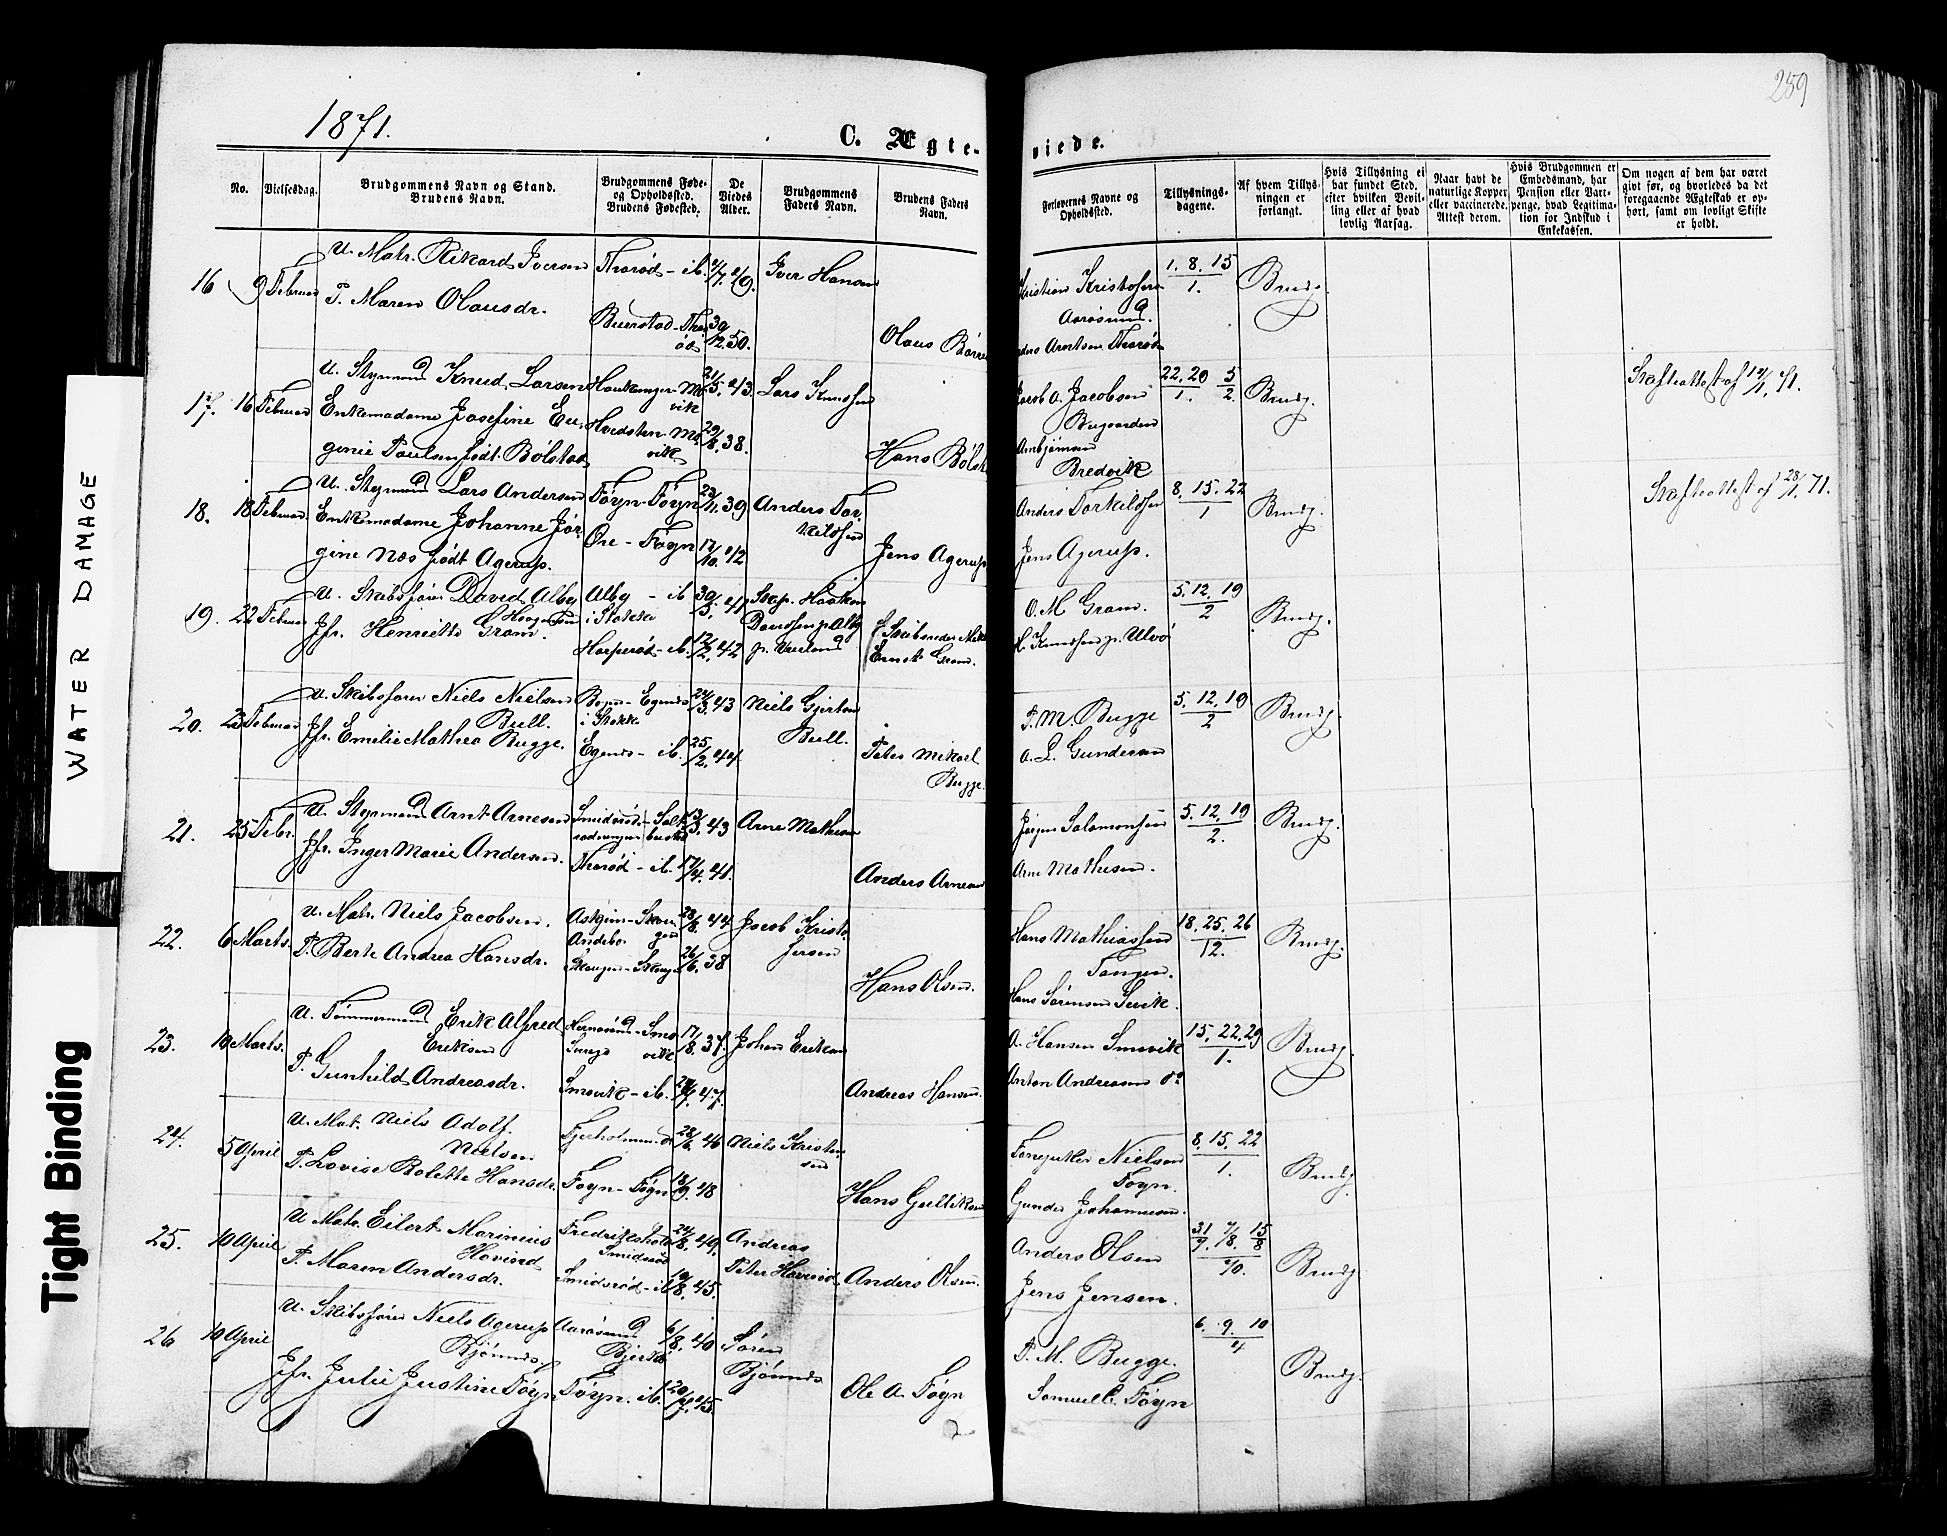 259
1871.
C. Ægte-
viede.
No.
Vielsesdag.
Brudgommens Navn og Stand.
Brudens Navn.
Brudgommens Føde-
og Opholdssted.
Brudens Fødested.
De
Viedes
Alder.
Brudgommens
Faders Navn.
Brudens Faders
Navn.
Forlovernes Navne og
Opholdssted.
Tillysnings-
dagene.
Af hvem Tillys-
ningen er
forlangt.
Hvis Tillysning ei
har fundet Sted,
efter hvilken Bevil-
ling eller af hvad
lovlig Aarsag.
Naar havt de
naturlige Kopper
eller vaccinerede.
Attest derom.
Hvis Brudgommen er
Embedsmand, har
Pension eller Vart-
penge, hvad Legitima-
tion for Indskud i
Enkekassen.
Om nogen af dem har været
givt før, og hvorledes da det
foregaaende Ægteskab er op-
hørt, samt om lovligt Skifte
er holdt.
16 9 Februar
U. Matr. Rikard Iversen
P. Maren Olausdr.
Thorød - ib.
Iver Hansen
Olaus
Kristian Kristofersen
Aarøsund.
Arntsen Thorød
1. 8. 15
1.
Brudg.
17. 16 Februar
U. Styrmand Knud Larsen
Enkemadame Josefine Eu-
genie Paulsen født Bølstad
Lars Knudsen
Hans Bølst
Jacob A. Jacobsen
Bugaarden
Bredvik
22. 29 5
1. 2.
Brudg.
Skifteattest af 19/1 71.
18. 18 Februar
U. Styrmand Lars Andersen
Enkemadame Johanne Jør-
gine Næs født Agerup.
Føyn - Føyn
Øre - Føyn
23/11. 39
12/10. 42
Anders Tor-
kildsen
Jens Agerup
Anders Torkildsen
Jens Agerup.
8. 15. 22
1
Brudg.
Skifteattest af 28/1 71.
19. 22 Februar
U. Skibsfører David Alby
Haagensen
Jfr. Henriette Gram.
Alby - ib
i Stokke
Harperød - ib.
12/2. 42
Skip. Haaken
Davidsen p. Alby
p. Veierland
Ernst Gram.
O. M Gram.
H. Knudsen p. Ulvø
5. 12. 19
2
Brudg.
20. 23 Februar
U. Skibsfører Niels Nielsen
Bull.
Jfr. Emilie Mathea Bugge.
i Stokke
Egenes - ib.
25/2. 44
Niels Gjertsen
Bull.
Peter Mikael
Bugge.
P. M. Bugge
A. L. Gundersen
5. 12. 19
2
Brudg.
21. 25 Febr.
U. Styrmand Arnt Arnesen
Jfr. Inger Marie Andersen.
Thorød - ib.
Arne Mathisen
Anders Arnesen
Jørgen Salomonsen
Arne Mathisen.
5. 12. 19
2.
Brudg.
22. 6 Marts.
U. Matr. Niels Jacobsen.
P. Berte Andrea Hansdr.
Andebo
28/8. 44
26/6. 38
Jacob Kristo-
fersen
Hans Olsen.
Hans Mathiassen
Tangen.
Hans Sørensen
18. 25. 26
12.
Brudg.
23. 10 Marts.
U. Tømmermand Erik Alfred
Eriksen
P. Gunhild Andreasdr.
Smøvik - ib.
17/8. 37.
Johan Eriksen
Andreas Hansen.
A. Hansen Smøvik
Anton Andreasen do
15. 22. 29
1.
Brudg.
24. 5 April
U. Mat. Niels Adolf.
Nielsen
P. Lovise Bolette Hansdr.
Fjerholmen
Føyn - Føyn
28/6. 46
18/9. 48
Niels Kristen-
sen
Hans Gulliksen
Nielsen
Føyn.
Gunder Johannesen
8. 15. 22
1.
Brudg.
25. 10 April
U. Matr. Eilert Marinius
Hovind
P. Maren Andersdr.
Smidsrød
Smidsrød - ib
24/8. 49.
19/8. 45.
Andreas
Peter
Anders Olsen.
Anders Olsen
Jens Jensen.
Brudg
26 10 April
U. Skibsfører Niels Agerup
Bjønnes.
Jfr. Julie Justine Føyn
Aarøsund
Bjerkø
Føyn. ib.
6/8. 40
Søren
Bjønnes
Ole A. Føyn
P. M. Bugge.
Samuel C. Føyn
6. 9. 10
4
Brudg.
WATER DAMAGE
Tight Binding